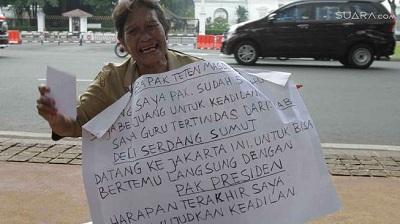 SUARA.com
PAK TETEN MAS
SAYA PAK. SUDAH
BERJUANG UNTUK KEADILAN
SAYA GURU TERTINDAS DARI
DELI SERDANG SUMUT
DATANG KE JAKARTA INI. UNTUK BISA
BERTEMU LANGSUNG DENGAN
PAK PRESIDEN
HARAPAN TERAKHIR SAYA
KEADILAN